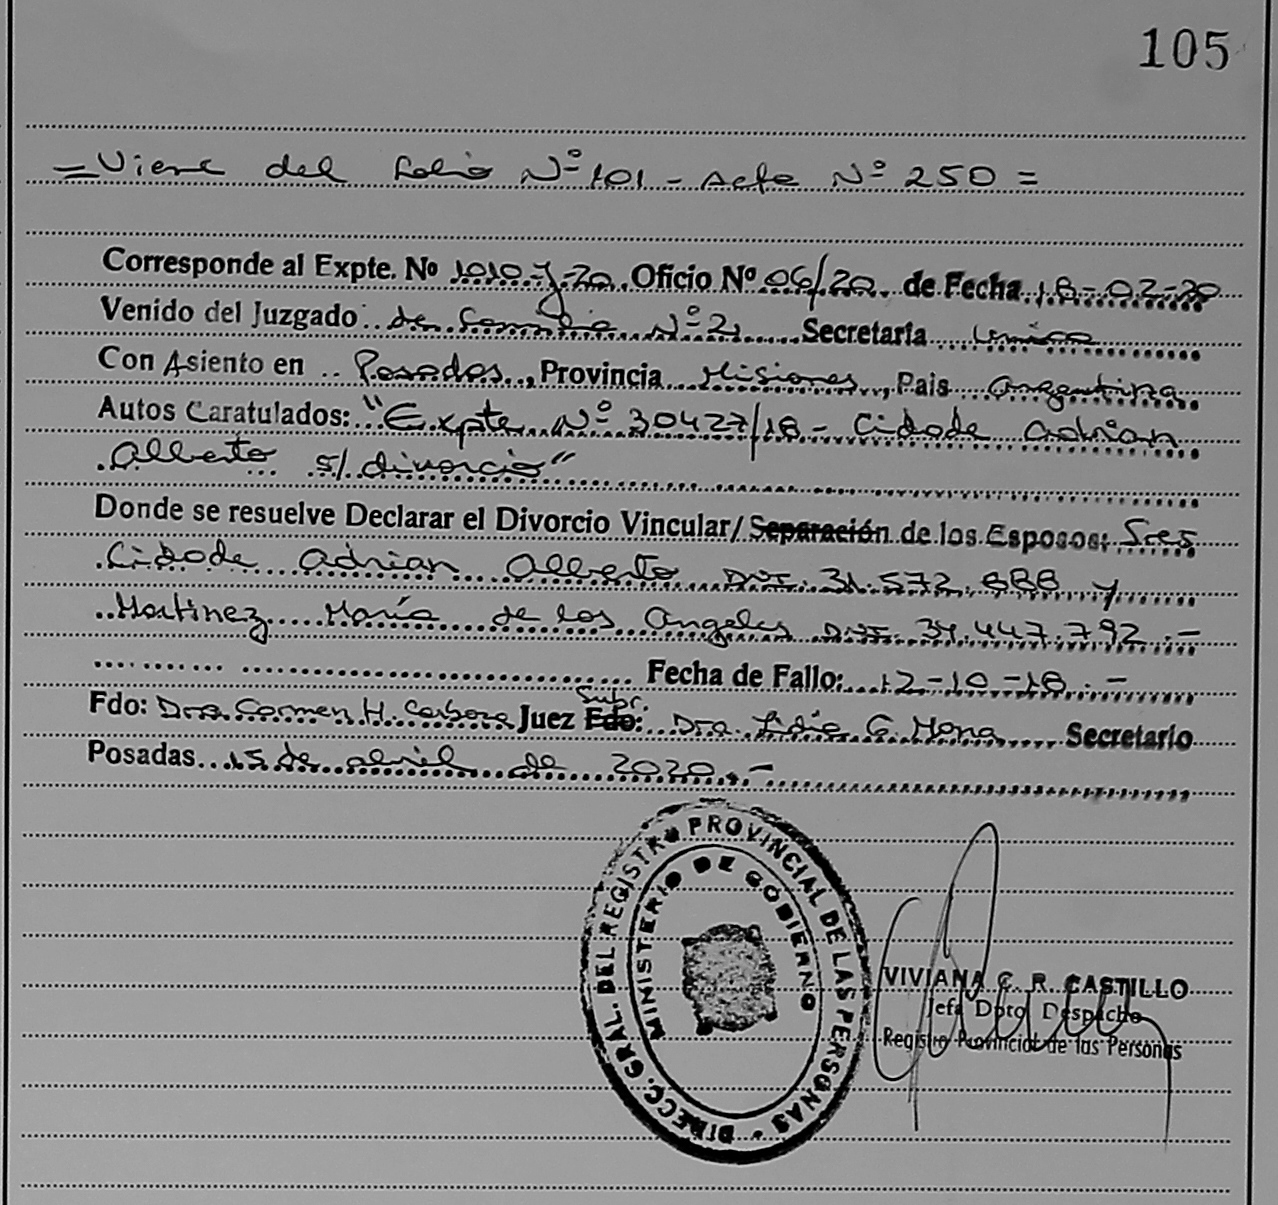 105
= Viene del folio Nº 101 - Acta Nº 250 =
Corresponde al Expte. Nº 1010-J-20. Oficio Nº 06/20. de Fecha 18-02-20
Venido del Juzgado de Familia Nº 2 Secretaría única
Con Asiento en Posadas, Provincia Misiones, Pais Argentina
Autos Caratulados: "Expte Nº 30427/18 - Cidade Adrian
Alberto s/ divorcio"
Donde se resuelve Declarar el Divorcio Vincular/ Separación de los Esposos: Sres
Cidade Adrian Alberto DNI. 31.572.688 y
Martinez María de los Angeles DNI 34.447.792.-
Fecha de Fallo: 12-10-18.-
Supr.
Fdo: Dra. Carmen H. Juez Fdo: Dra. Lidia G. Mena Secretario
Posadas 15 de abril de 2020.-
DIRECC. GRAL. DEL REGISTRO PROVINCIAL DE LAS PERSONAS
MINISTERIO DE GOBIERNO
VIVIANA C. R. CASTILLO
Jefa Dpto Despacho
Registro Provincial de las Personas